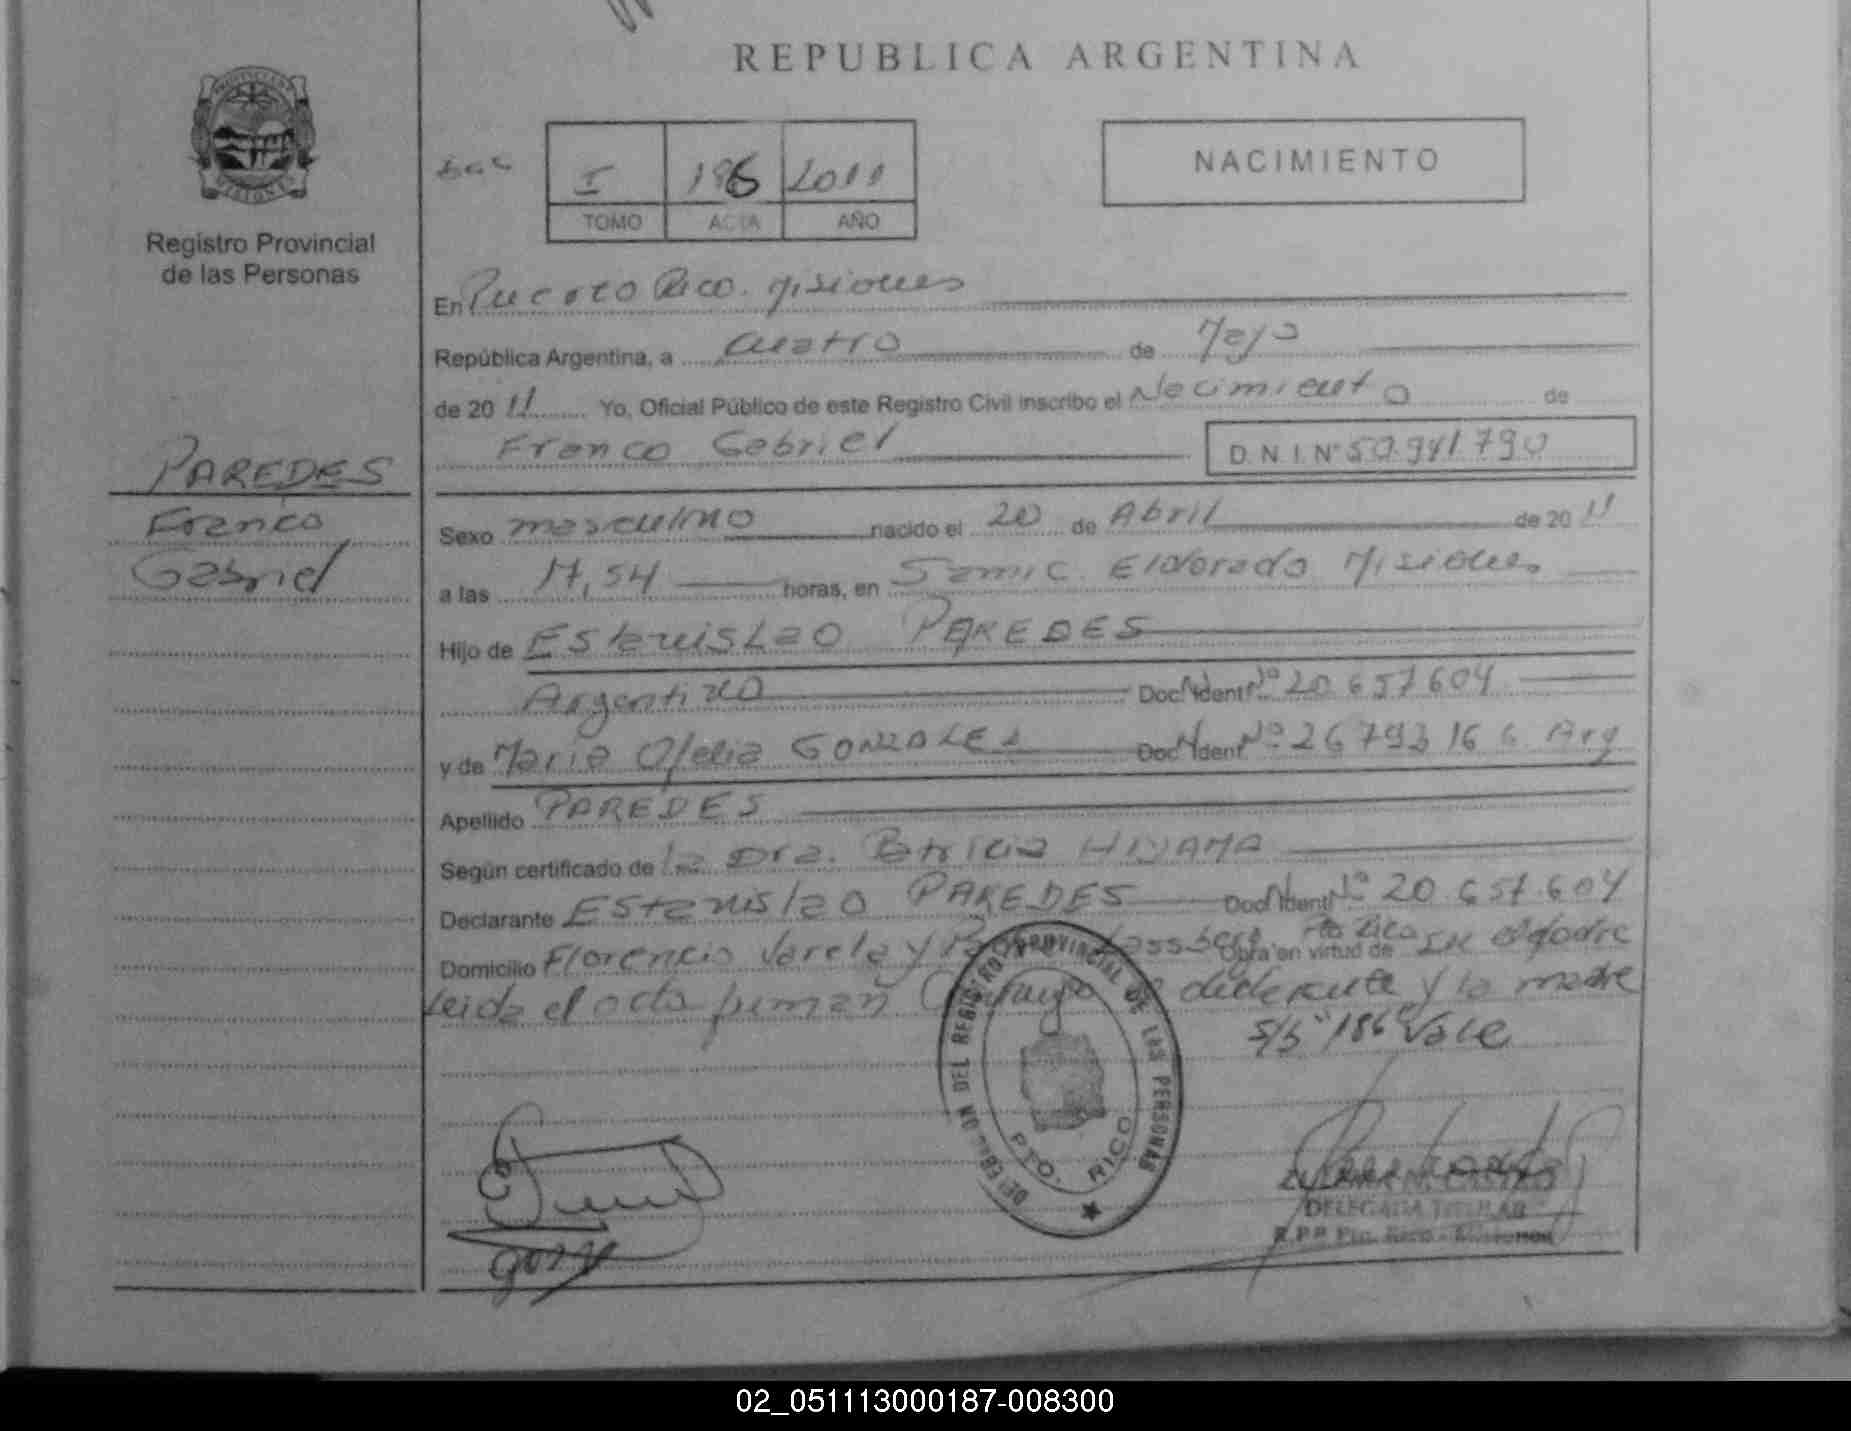 REPUBLICA ARGENTINA
I 186 2011
TOMO ACTA AÑO
NACIMIENTO
Registro Provincial
de las Personas
PAREDES
Franco
Gabriel
En Puerto Rico. Misiones
República Argentina, a cuatro de Mayo
de 2011 Yo, Oficial Público de este Registro Civil inscribo el Nacimiento de
Franco Gabriel D.N.I. Nº 50.941.790
Sexo masculino nacido el 20 de Abril de 2011
a las 17,54 horas, en Samic. Eldorado Misiones
Hijo de Estanislao PAREDES
Argentino Doc. Ident. Nº 20 657 604
y de Maria Ofelia GONZALES Doc. Ident. Nº 26 793 166 Arg
Apellido PAREDES
Según certificado de la Dra. Patricia
Declarante Estanislao PAREDES Doc. Ident. Nº 20.657.604
Domicilio Florencio Varela y Pto Rico Obra en virtud de ser el padre
Leida el acta firman Conmigo el declarante y la madre
S/b "186" Vale
DELEGACION DEL REGISTRO PROVINCIAL DE LAS PERSONAS
PTO. RICO
DELEGADA TITULAR
R.P.P. Pto. Rico - Misiones
02_051113000187-008300